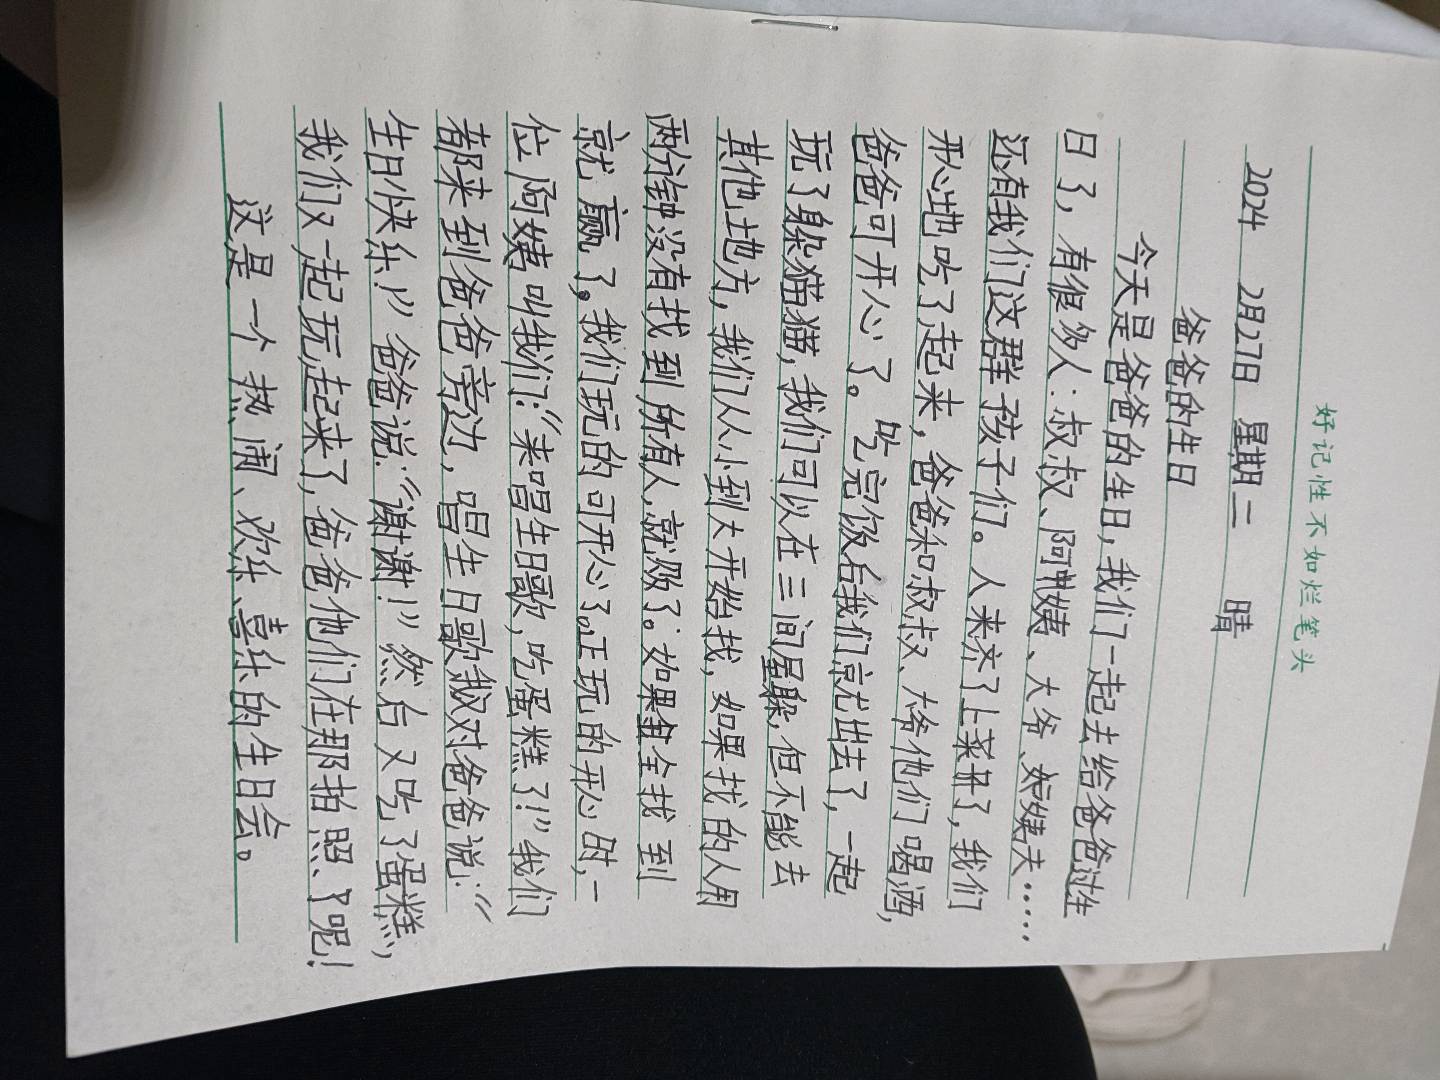 好记性不如烂笔头
2024 2月27日 星期二 晴
爸爸的生日
今天是爸爸的生日，我们一起去给爸爸过生
日了，有很多人：叔叔、阿姨、大爷、姨夫……
还有我们这群孩子们。人来齐了上菜了，我们
开心地吃了起来，爸爸和叔叔、大爷他们喝酒，
爸爸可开心了。吃完饭后我们就出去了，一起
玩了躲猫猫，我们可以在三间屋躲，但不能去
其他地方，我们从小到大开始找，如果找的人用
两分钟没有找到所有人，就败了。如果全找到
就赢了。我们玩的可开心了。正玩的开心时，一
位阿姨叫我们：“来唱生日歌，吃蛋糕了！”我们
都来到爸爸旁边，唱生日歌对爸爸说：“
生日快乐！”爸爸说：“谢谢！”然后又吃了蛋糕，
我们又一起玩起来了，爸爸他们在那拍照了呢！
这是一个热闹、欢乐、喜乐的生日会。